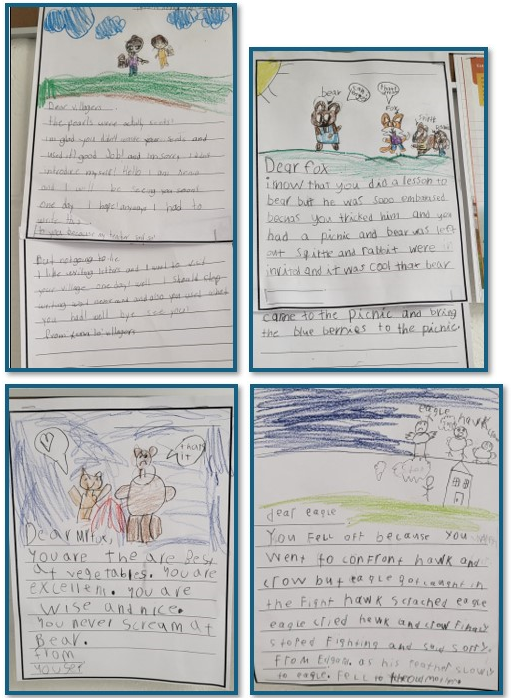 Dear villagers
the pearls were actully seeds!
im glad you didn't waste your seeds and
used it good Job! and Im sorry I didnt
introduce my self! Hello I am
and I well be seeing you
one day I hope! anyways I had to
write this
But not going to lie
I like writing letters and I want to visit
your village one day! well I should stop
writing and never mind and also you used what
you had! well bye see you!
from to villagers
bear
Fox
Dear fox
i now that you did a lesson to
bear but he was sooo embarised
becuas you tricked him and you
had a picnic and bear was left
out squirtle and rabbit were
invited and it was cool that bear
came to the picnic and bring
the blue berries to the picnic.
Dear Mr fox,
you are the are best
at vegetables. you are
excellent. you are
wise and nice.
you never scream at
Bear.
from
eagle hawk
dear eagle
you fell off because you
went to confront hawk and
crow but eagle got caught in
the fight hawk scrached eagle
eagle cried hawk and crow finaly
stoped fighting and said sorry.
From as his feather slowly
to eagle. fell to